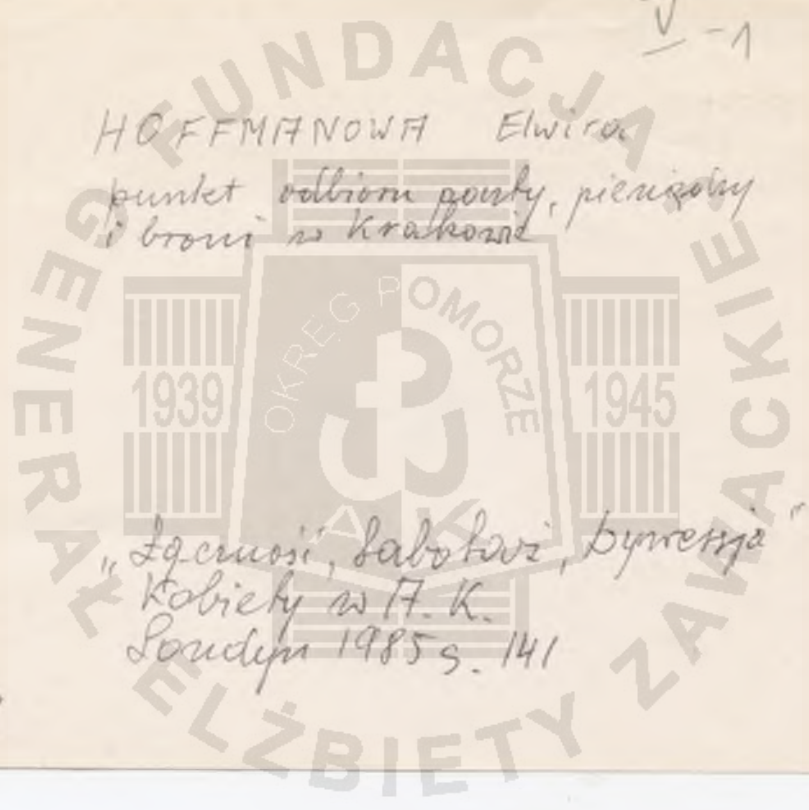 V -1
HOFFMANOWA Elwira
punkt odbioru poczty, pieniędzy
i broni w Krakowie
„Łączność, Sabotaż, Dywersja”
Kobiety w A. K.
Londyn 1985 s. 141
FUNDACJA
GENERAŁ ELŻBIETY ZAWACKIEJ
OKRĘG POMORZE
1939
1945
AK